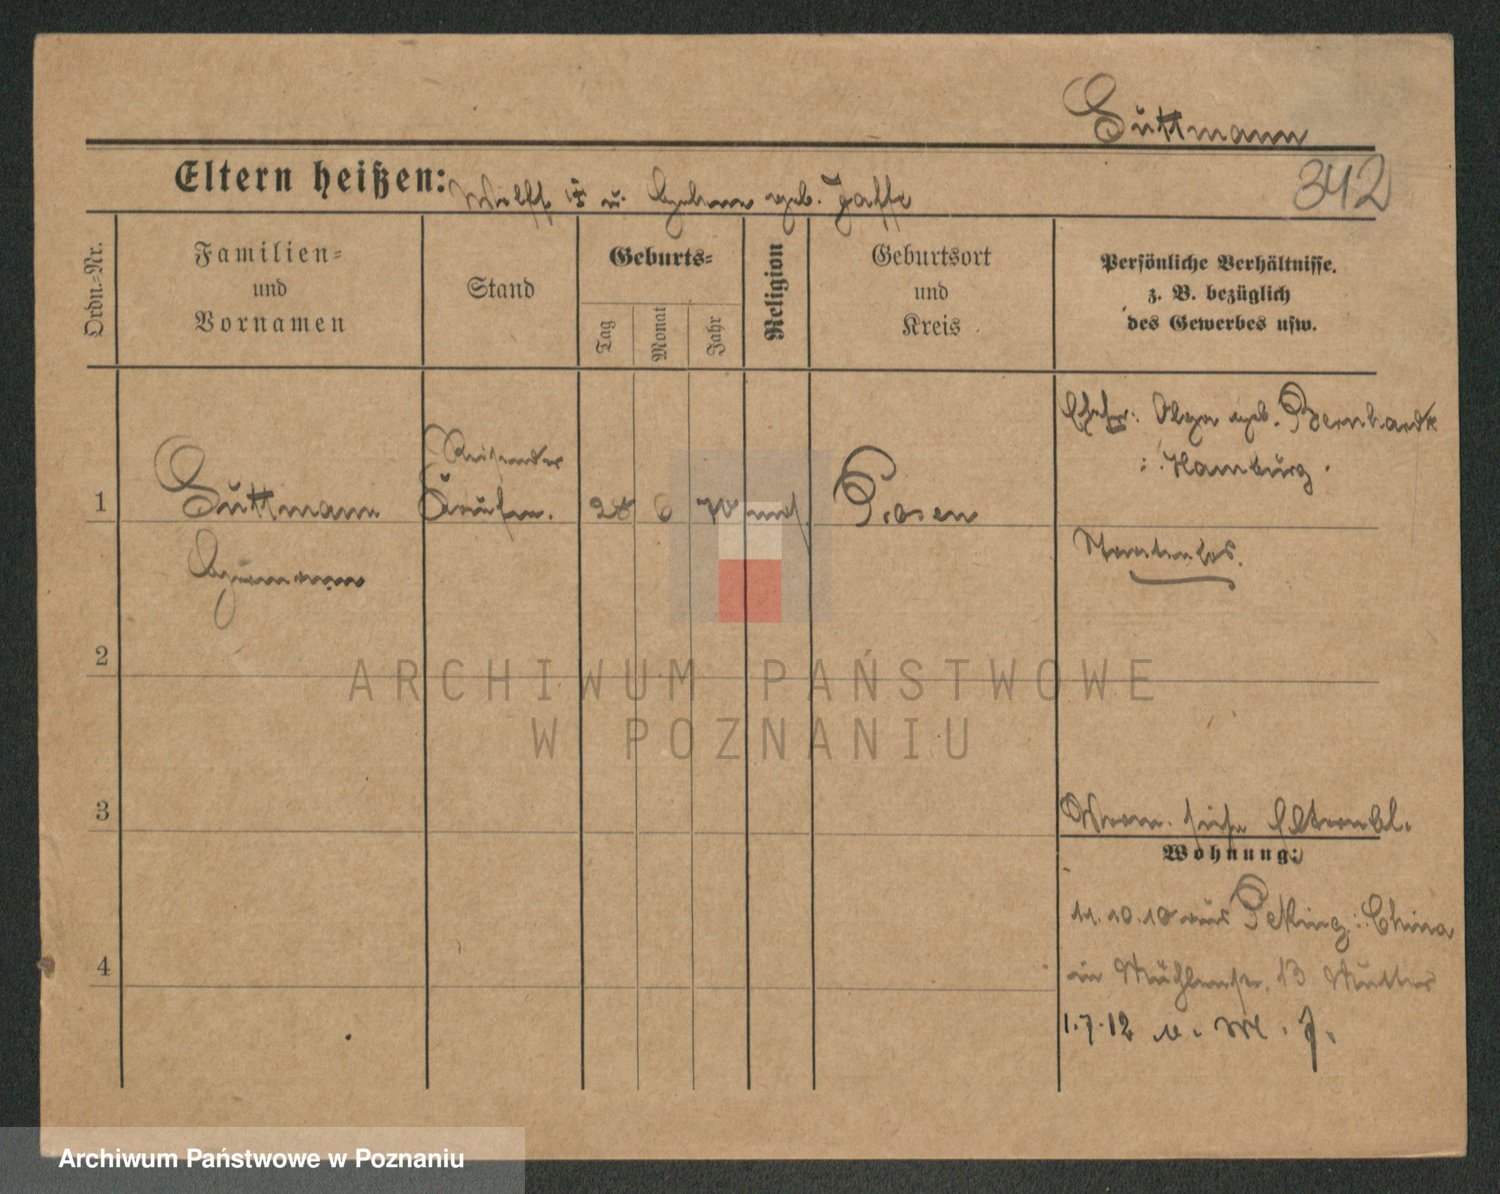 Guttmann
342
Eltern heißen: Wolff u. geb. Jaffe
Ordn.-Nr.
Familien-
und
Vornamen
Stand
Geburts-
Tag
Monat
Jahr
Religion
Geburtsort
und
Kreis
Persönliche Verhältnisse.
z. B. bezüglich
des Gewerbes usw.
Ehefr: Olga geb. Bernhardt
: Hamburg.
Reisender
1 Guttmann Kaufm. 28 6 70 mos. Posen
Hermann
Staatenlos.
2
3
siehe
Wohnung:
11.10.10 aus Peking: China
in Mühlenstr. 13 Mutter
4
1.7.12
ARCHIWUM PAŃSTWOWE
W POZNANIU
Archiwum Państwowe w Poznaniu